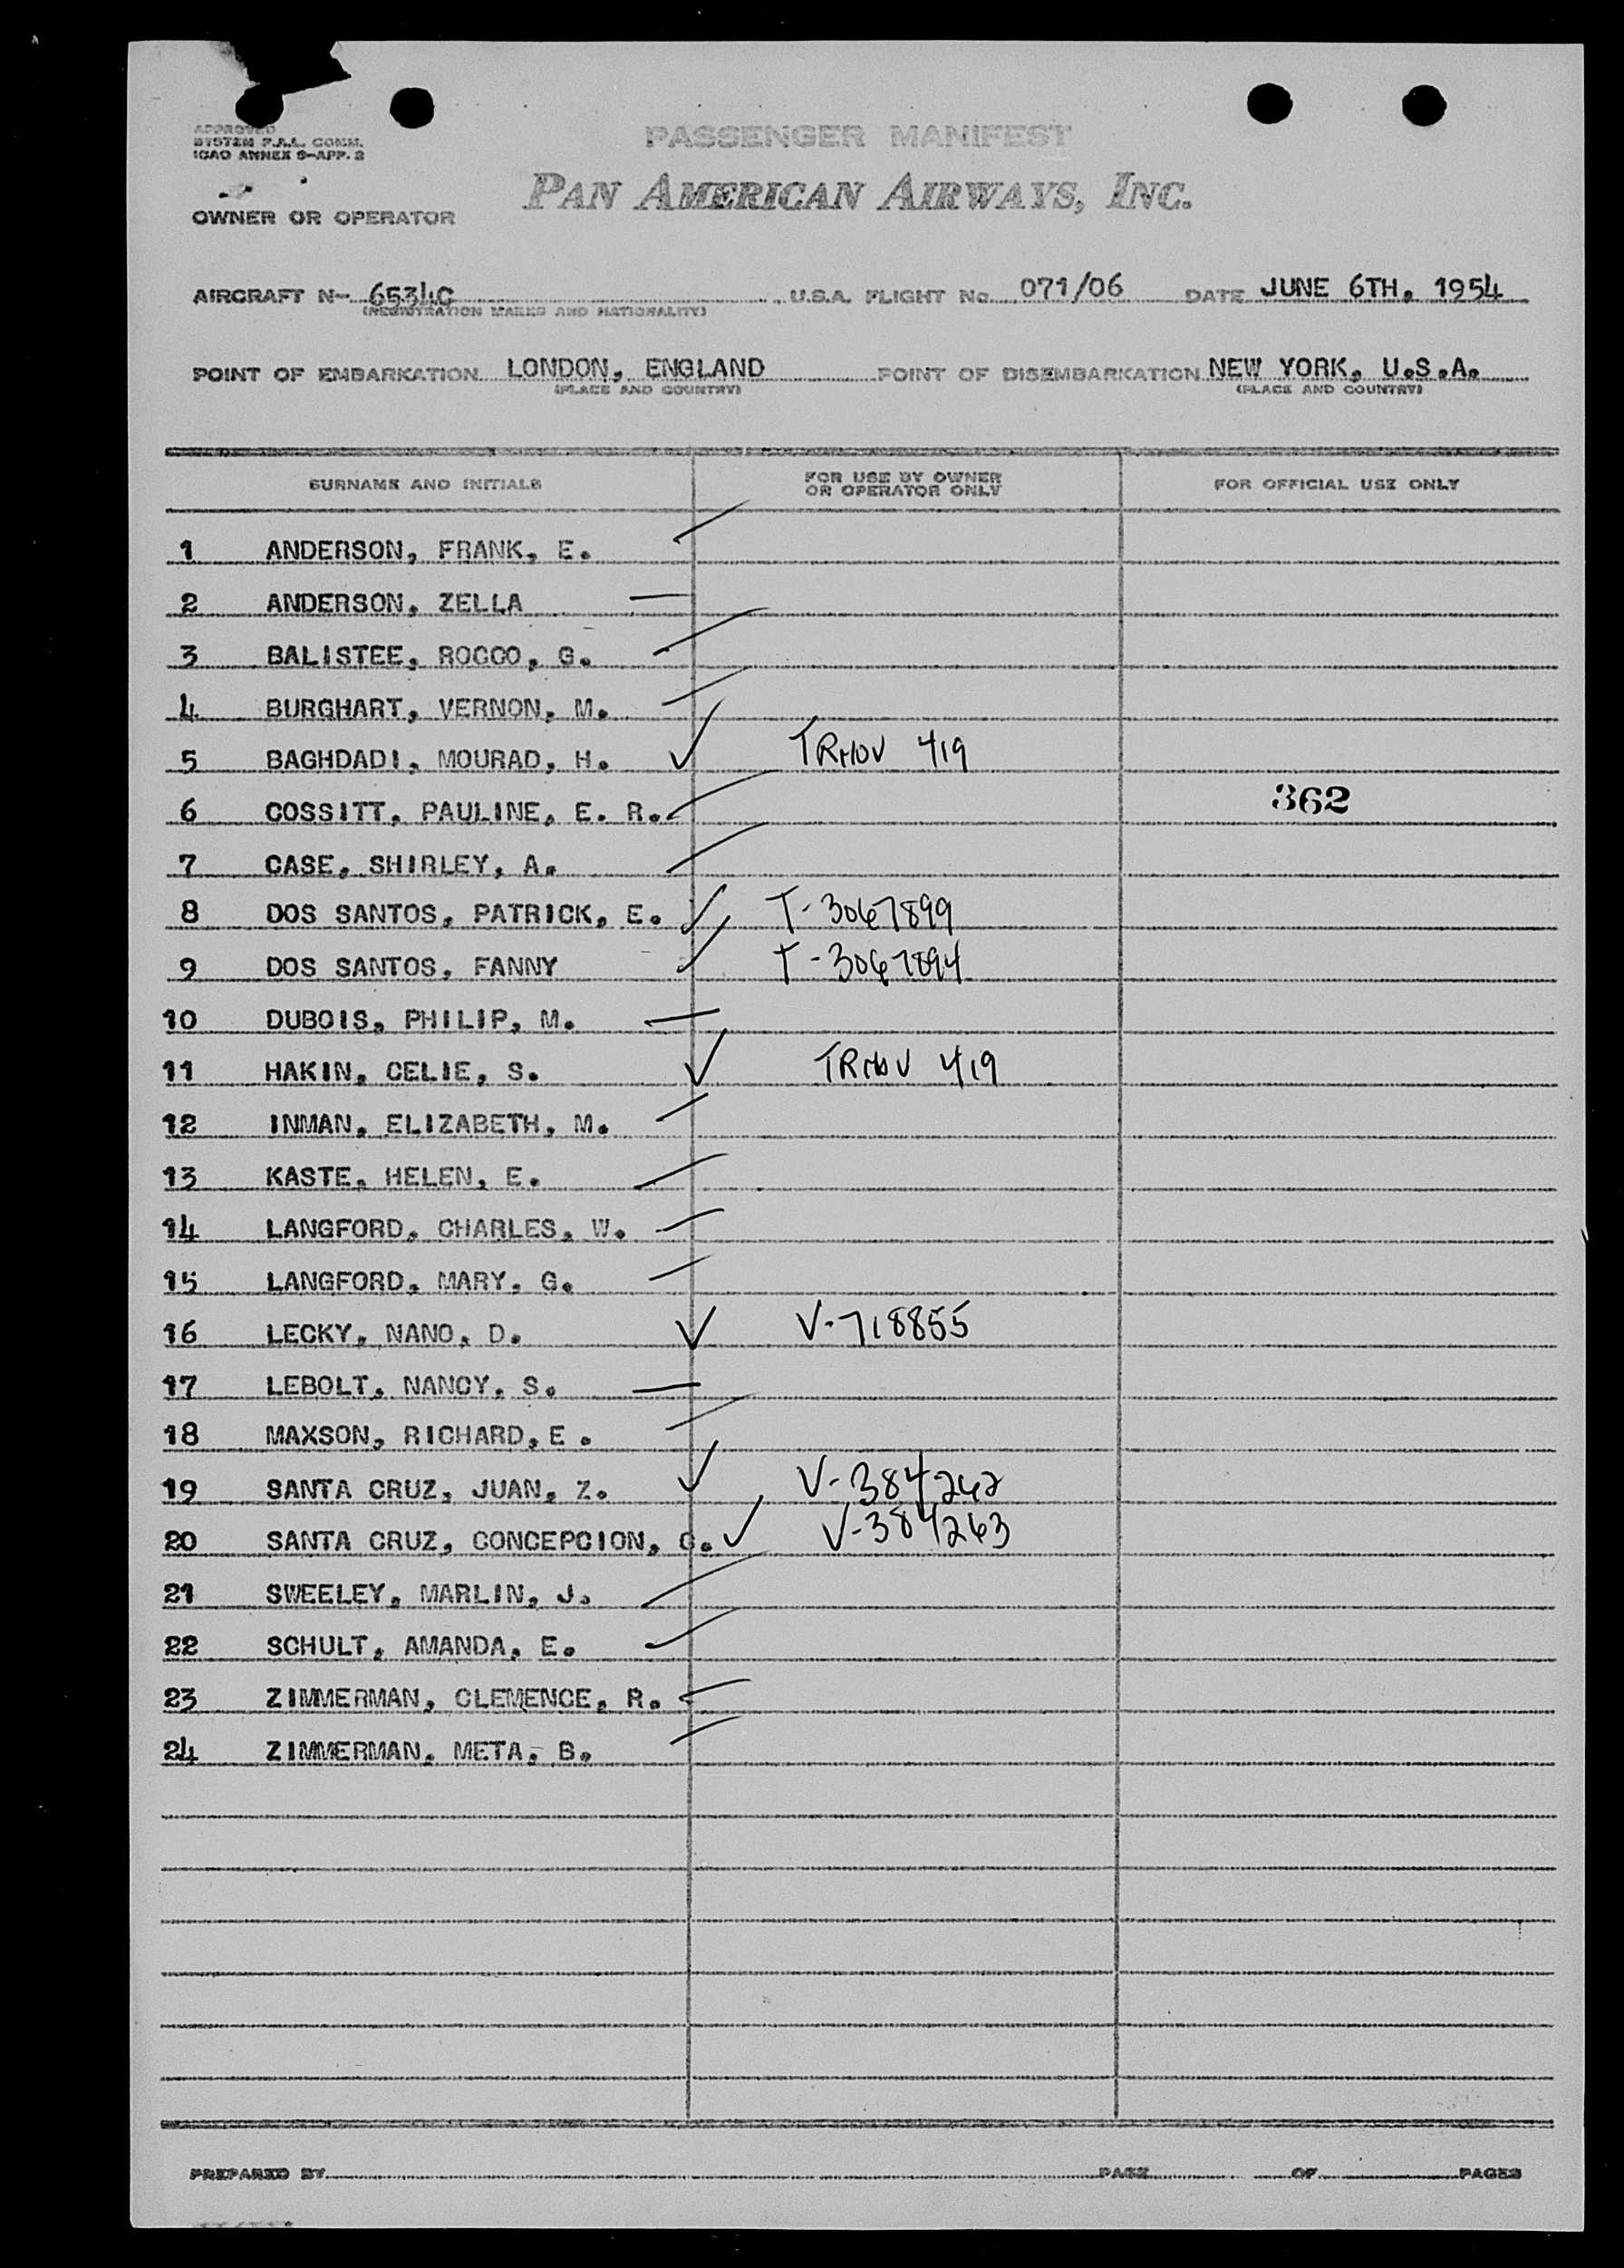 APPROVED
SYSTEM P.A.A. COMM.
ICAO ANNEX 9-APP. 2
PASSENGER MANIFEST
PAN AMERICAN AIRWAYS, INC.
OWNER OR OPERATOR
AIRCRAFT N- 6534C U.S.A. FLIGHT No. 071/06 DATE JUNE 6TH, 1954
(REGISTRATION MARKS AND NATIONALITY)
POINT OF EMBARKATION LONDON, ENGLAND POINT OF DISEMBARKATION NEW YORK, U.S.A.
(PLACE AND COUNTRY) (PLACE AND COUNTRY)
SURNAME AND INITIALS FOR USE BY OWNER OR OPERATOR ONLY FOR OFFICIAL USE ONLY
1 ANDERSON, FRANK, E.
2 ANDERSON, ZELLA
3 BALISTEE, ROCCO, G.
4 BURGHART, VERNON, M.
5 BAGHDADI, MOURAD, H. ✓ 419
6 COSSITT, PAULINE, E. R. 362
7 CASE, SHIRLEY, A.
8 DOS SANTOS, PATRICK, E. ✓ T-3067899
9 DOS SANTOS, FANNY ✓ T-3067894
10 DUBOIS, PHILIP, M.
11 HAKIN, CELIE, S. ✓ 419
12 INMAN, ELIZABETH, M.
13 KASTE, HELEN, E.
14 LANGFORD, CHARLES, W.
15 LANGFORD, MARY, G.
16 LECKY, NANO, D. ✓ V-718855
17 LEBOLT, NANCY, S.
18 MAXSON, RICHARD, E.
19 SANTA CRUZ, JUAN, Z. ✓ V-384262
20 SANTA CRUZ, CONCEPCION, G. ✓ V-384263
21 SWEELEY, MARLIN, J.
22 SCHULT, AMANDA, E.
23 ZIMMERMAN, CLEMENCE, R.
24 ZIMMERMAN, META, B.
PREPARED BY PAGE OF PAGES